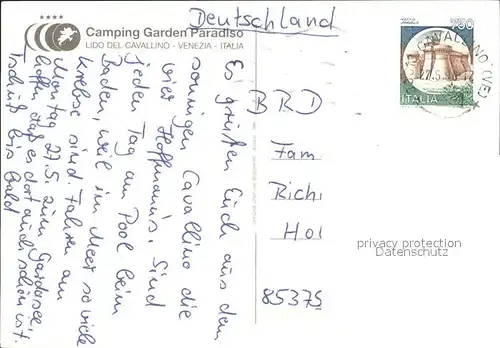 Deutschland
Camping Garden Paradiso
LIDO DEL CAVALLINO - VENEZIA - ITALIA
750
ITALIA
CAVALLINO (VE)
Es grüßen Euch aus dem
sonnigen Cavallino die
vier Hoffmann's. Sind
jeden Tag am Pool beim
Baden, weil im Meer so viele
sind. Fahren am
Montag 27.5. zum Gardasee,
hoffen daß es dort auch schön ist.
Tschüß bis bald
BRD
Fam
Richi
Hol
85375
privacy protection
Datenschutz